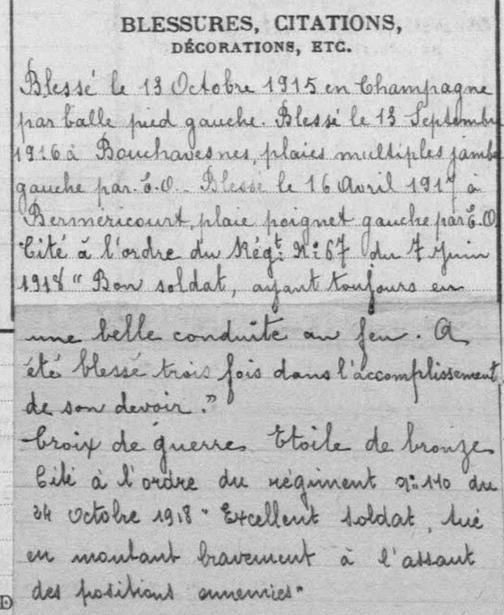 BLESSURES, CITATIONS,
DÉCORATIONS, ETC.
Blessé le 13 Octobre 1915 en Champagne
par balle pied gauche. Blessé le 13 Septembre
1916 à Bouchavesnes, plaies multiples jambe
gauche par. E.O. - Blessé le 16 Avril 1917 à
Berméricourt, plaie poignet gauche par E.O
Cité à l'ordre du Régt. N° 67 du 7 Juin
1918 " Bon soldat, ayant toujours eu
une belle conduite au feu. A
été blessé trois fois dans l'accomplissement
de son devoir."
Croix de guerre Etoile de bronze
Cité à l'ordre du régiment n° 110 du
24 Octobre 1918 " Excellent soldat, tué
en montant bravement à l'assaut
des positions ennemies"
D